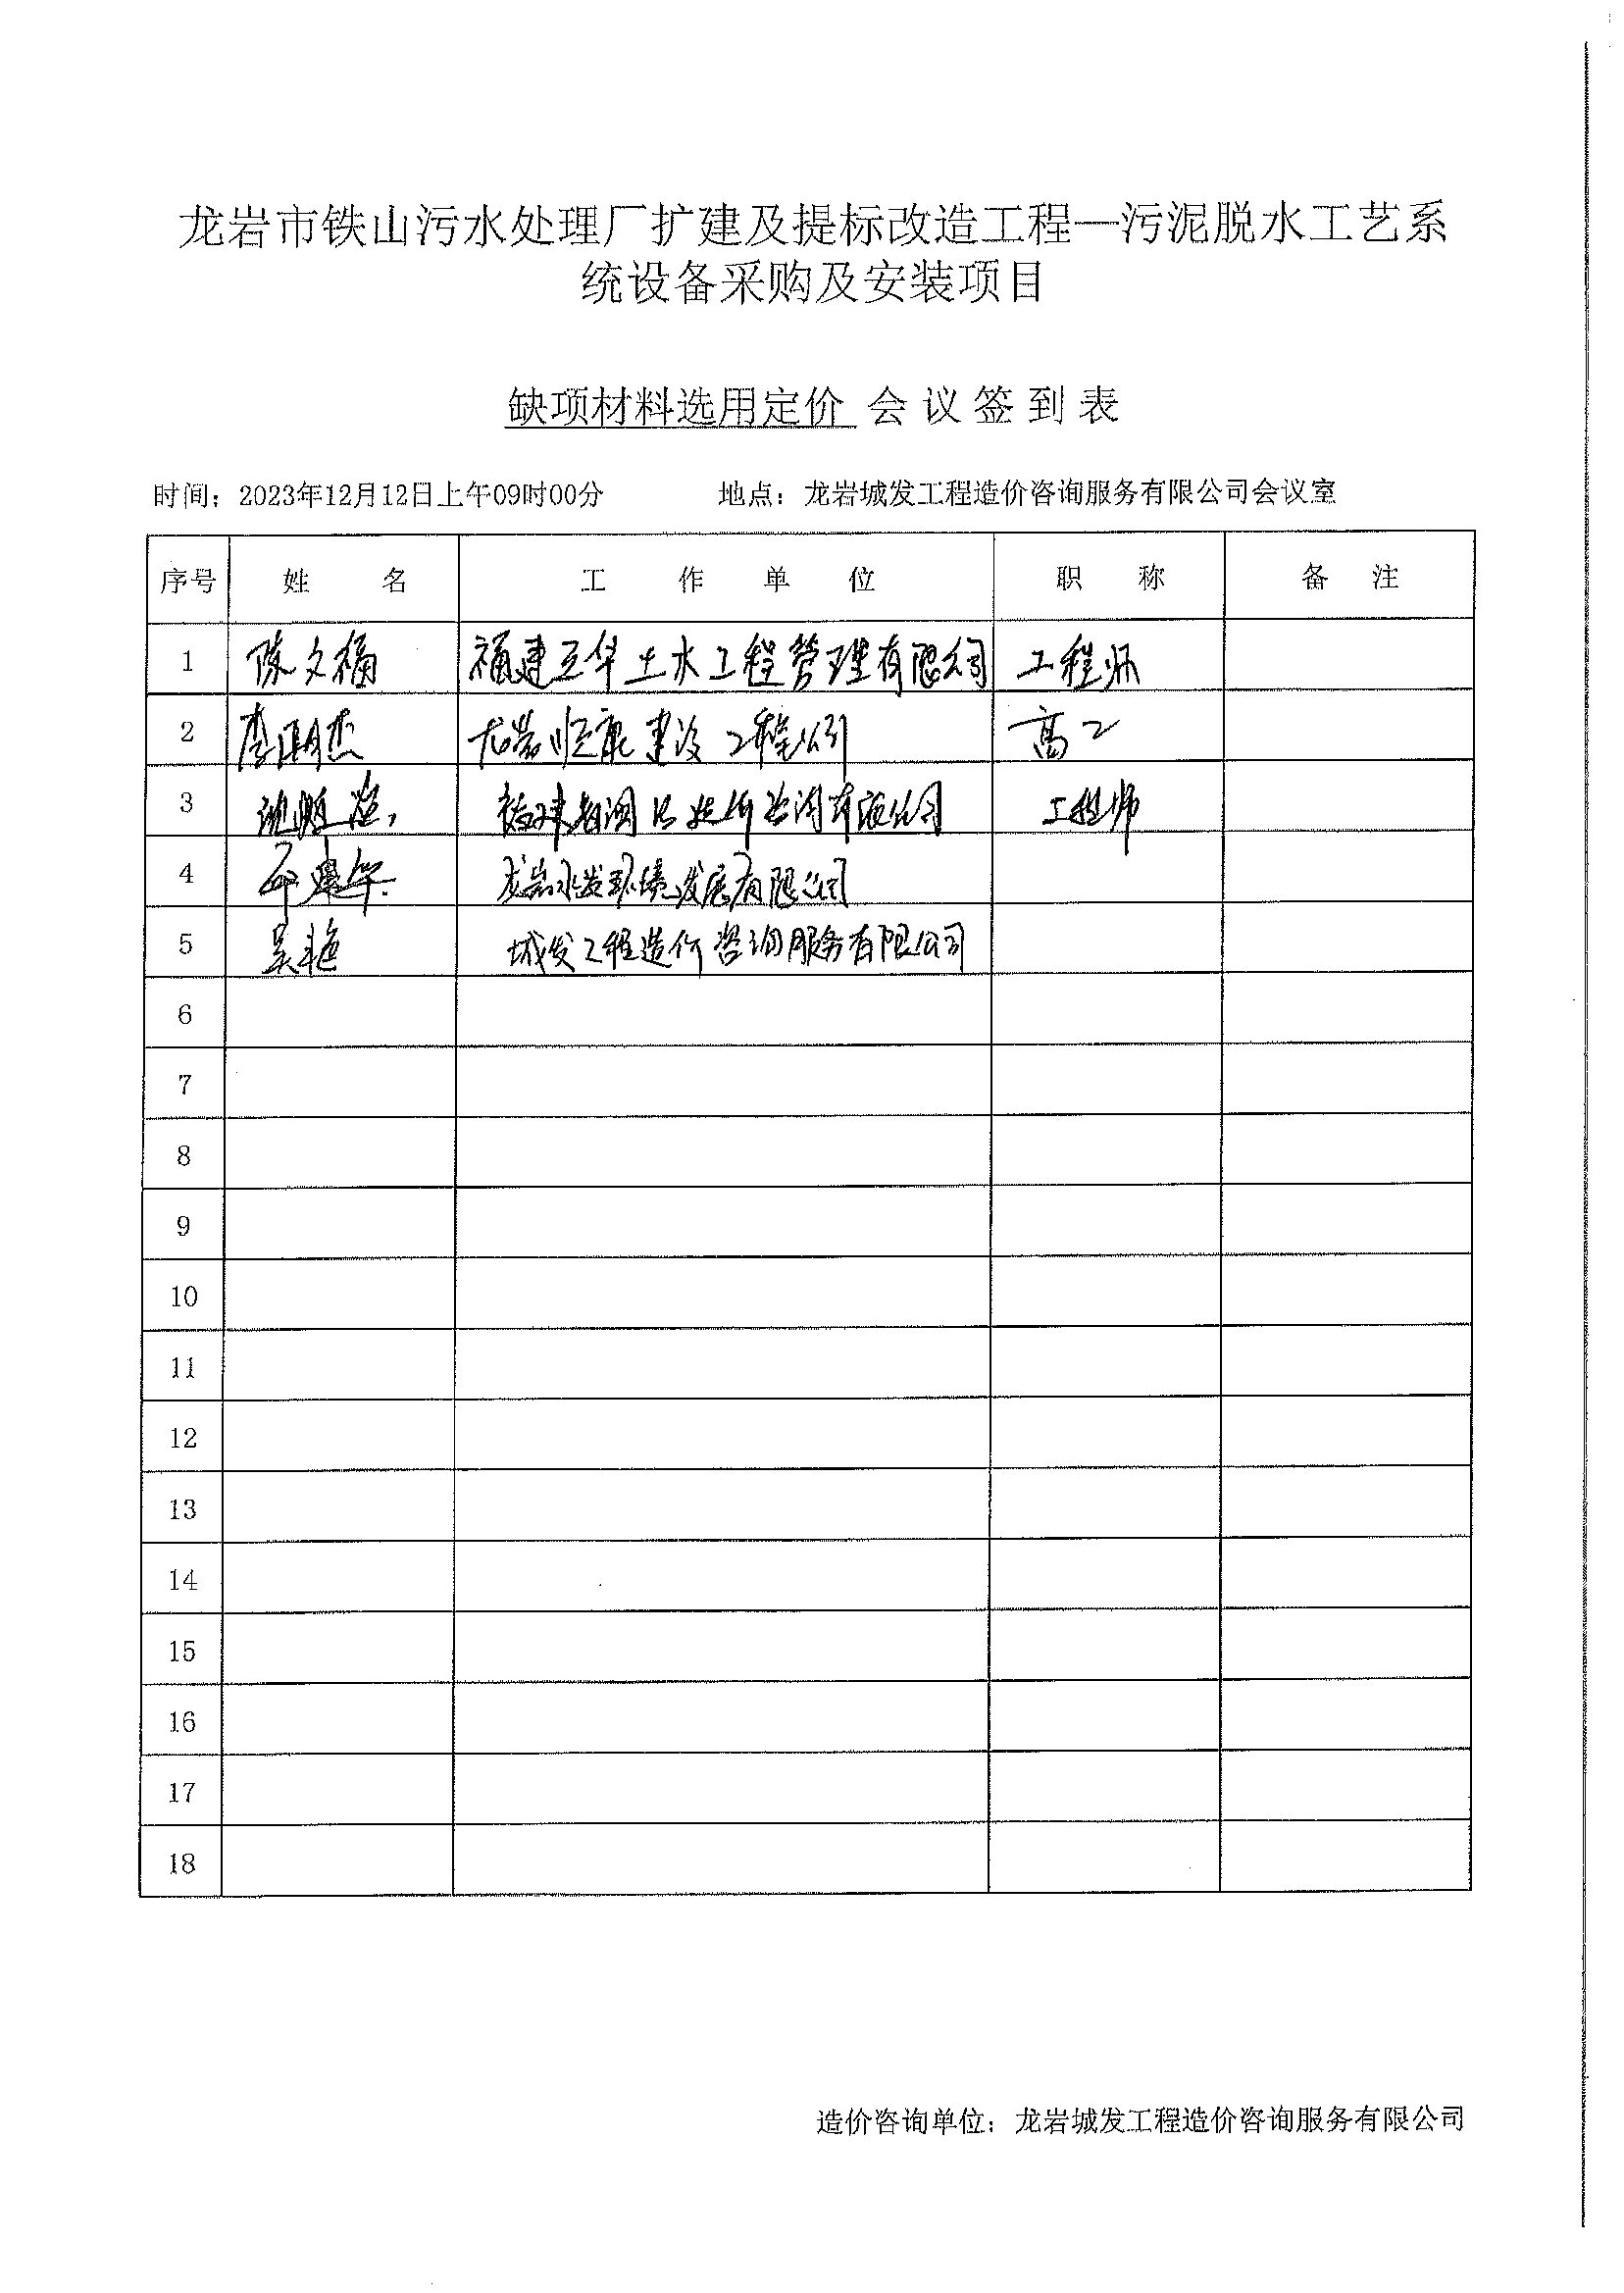 龙岩市铁山污水处理厂扩建及提标改造工程—污泥脱水工艺系
统设备采购及安装项目
缺项材料选用定价 会议签到表
时间：2023年12月12日上午09时00分 地点：龙岩城发工程造价咨询服务有限公司会议室
序号 姓名 工作单位 职称 备注
1 陈文福 福建互华土木工程管理有限公司 工程师
2 李明杰 龙岩恒航建设工程公司 高工
3 福建省闽 造价咨询有限公司 工程师
4 龙岩水发环境发展有限公司
5 吴艳 城发工程造价咨询服务有限公司
6
7
8
9
10
11
12
13
14
15
16
17
18
造价咨询单位：龙岩城发工程造价咨询服务有限公司